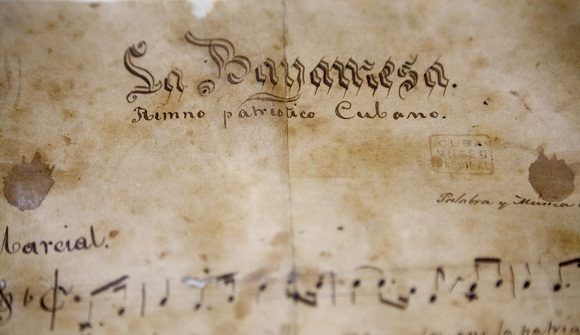 La Bayamesa.
Himno patriótico Cubano.
CUBA
MUSEO
Palabra y Música
Marcial.
la patria